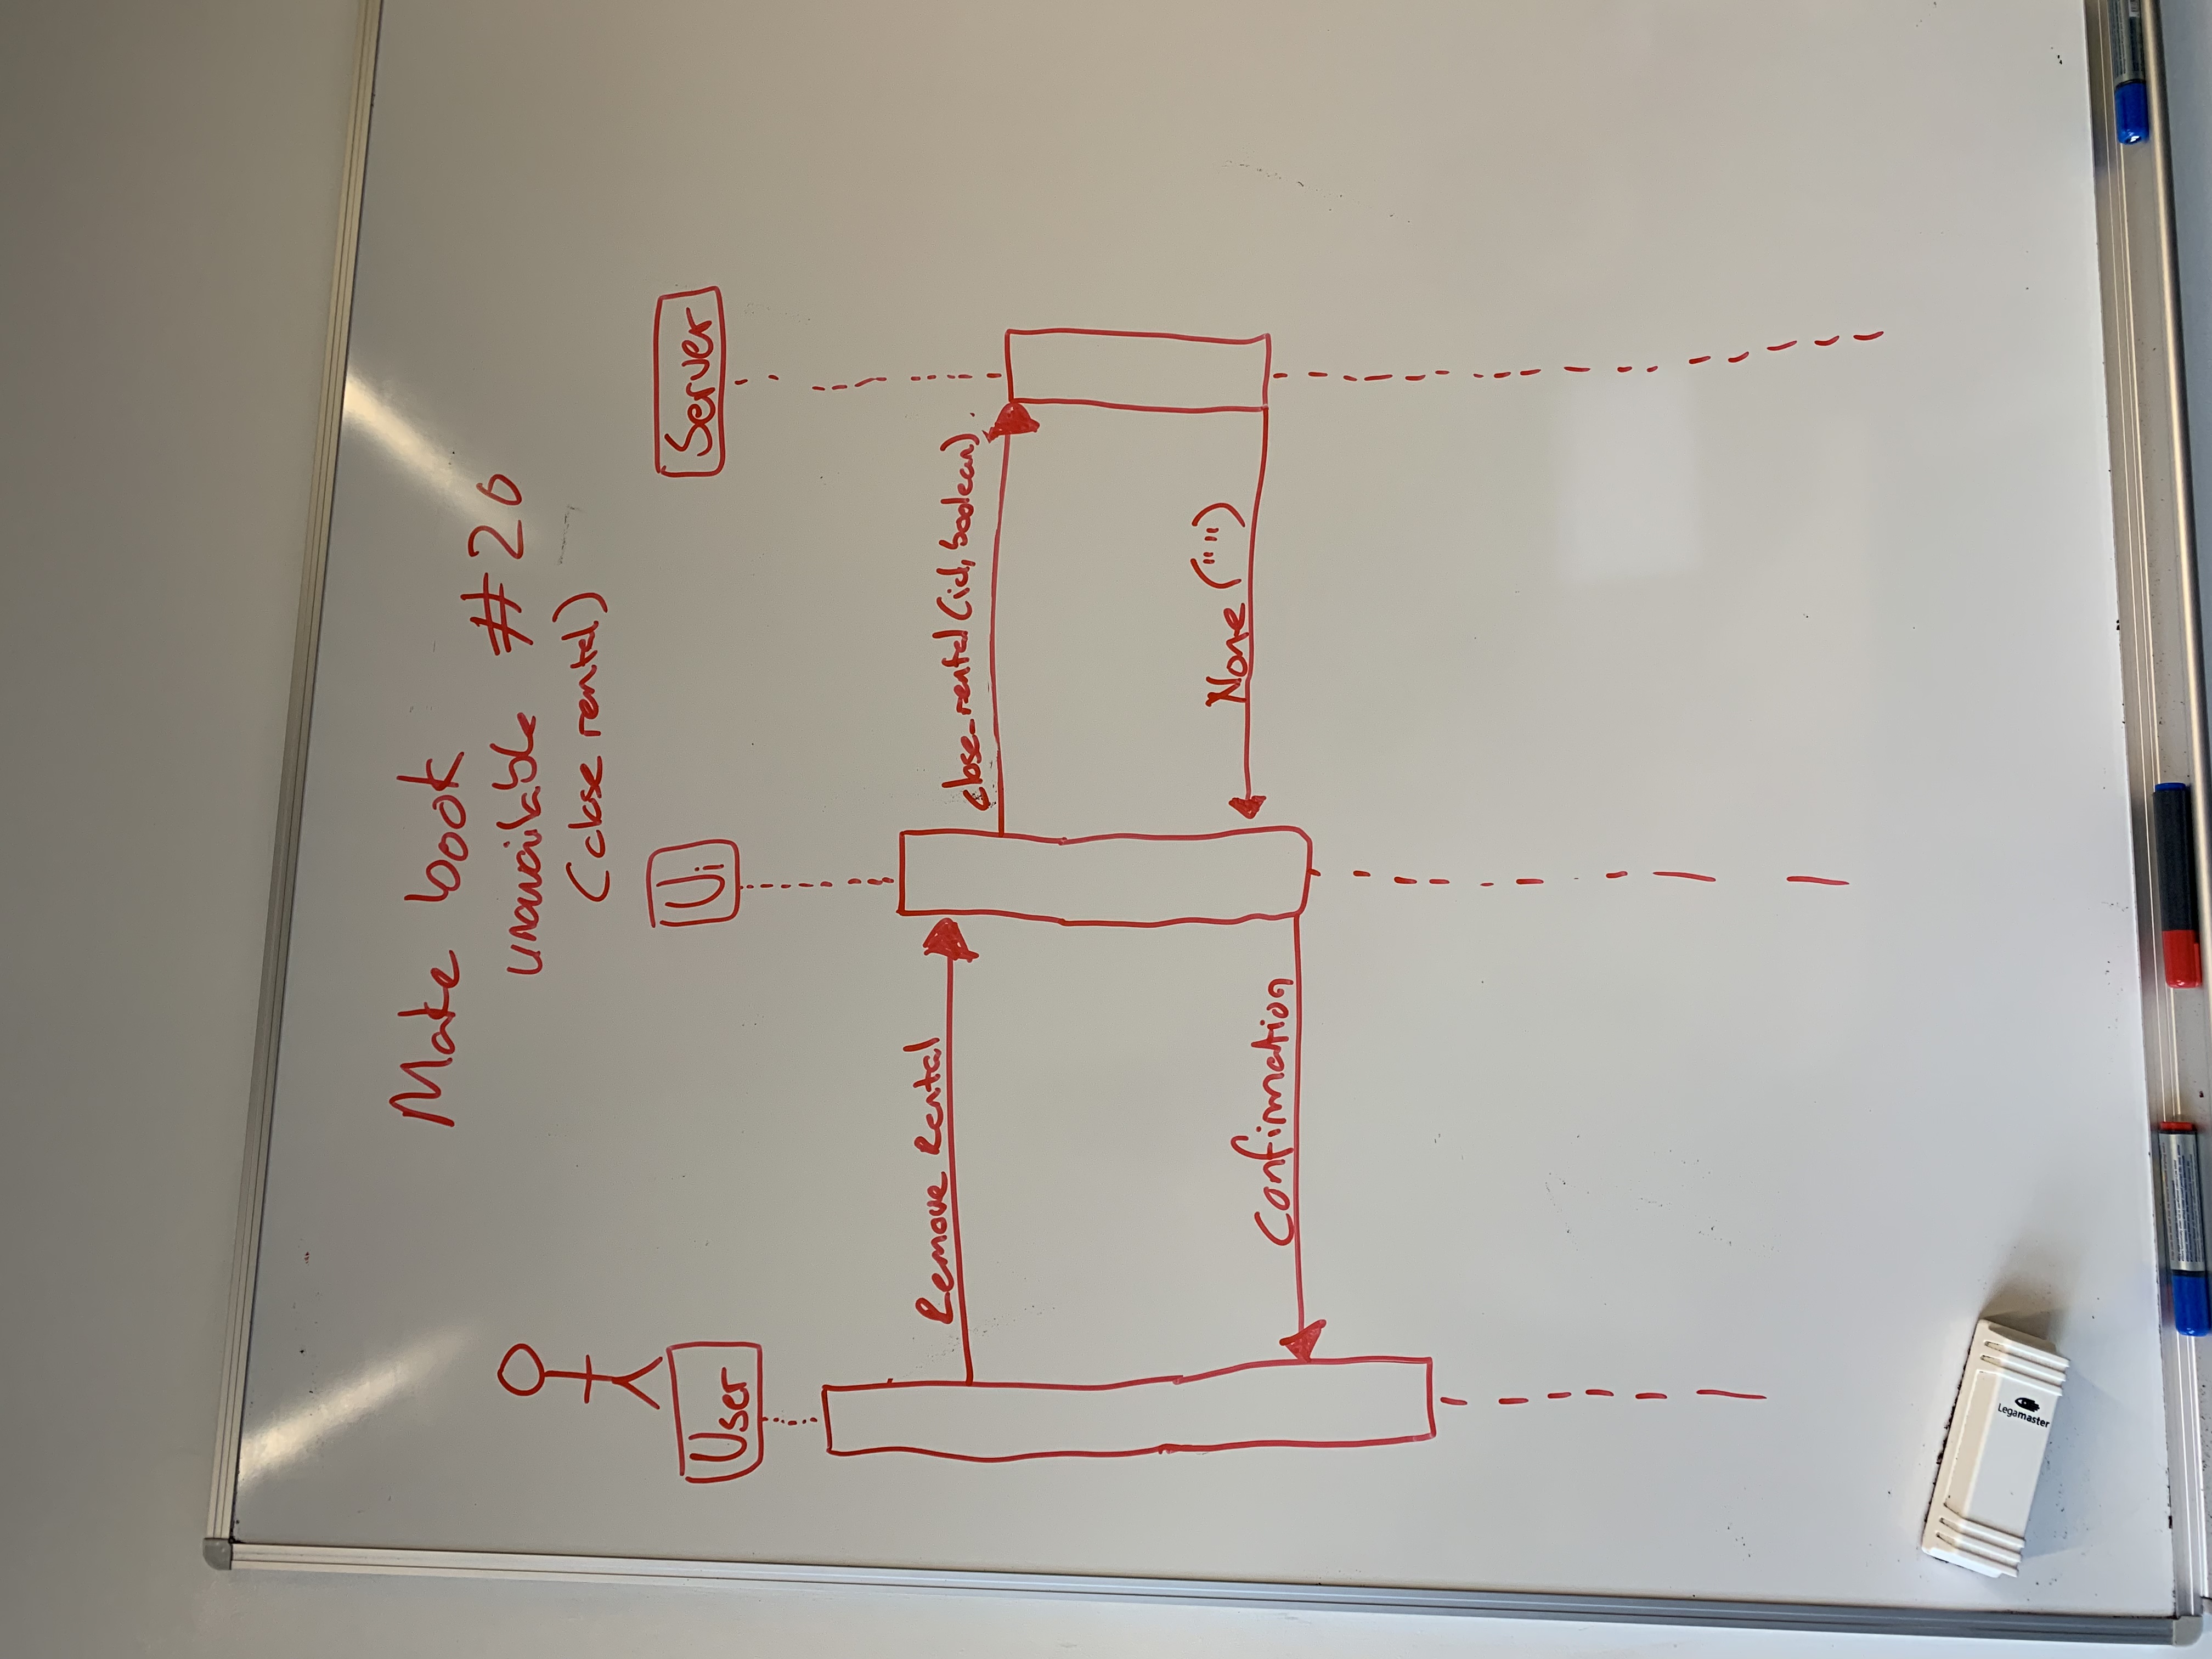 Make book
unavailable #20
(close rental)
User
Ui
Server
Remove Rental
close_rental (id, boolean)
None ("")
Confirmation
Legamaster